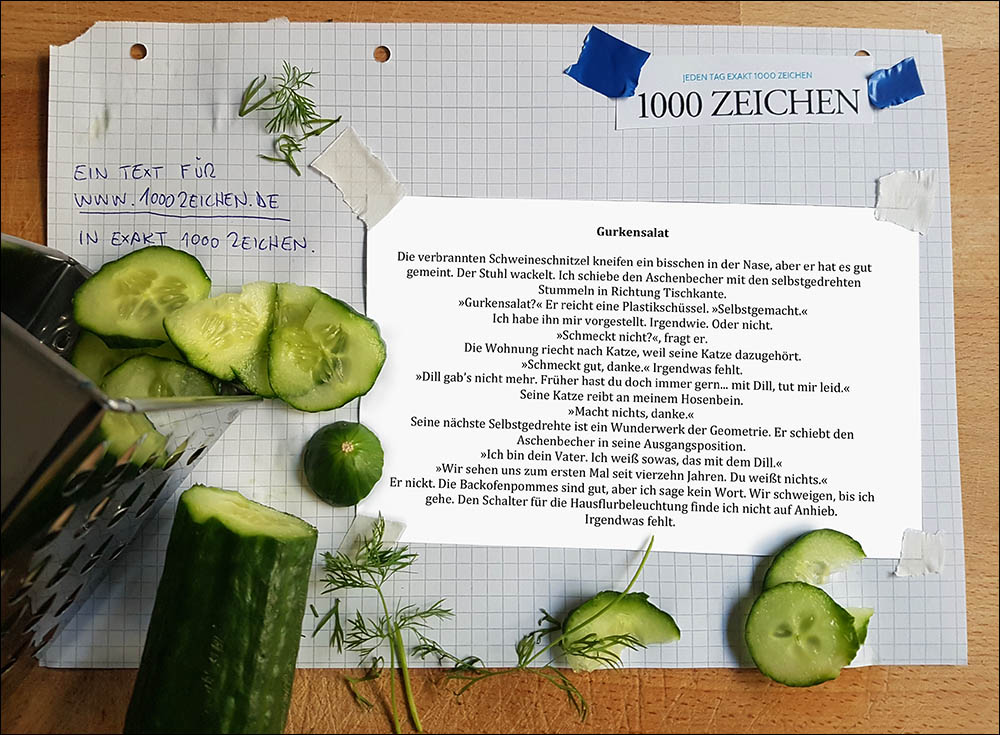 JEDEN TAG EXAKT 1000 ZEICHEN
1000 ZEICHEN
EIN TEXT FÜR
WWW.1000ZEICHEN.DE
IN EXAKT 1000 ZEICHEN.
Gurkensalat
Die verbrannten Schweineschnitzel kneifen ein bisschen in der Nase, aber er hat es gut
gemeint. Der Stuhl wackelt. Ich schiebe den Aschenbecher mit den selbstgedrehten
Stummeln in Richtung Tischkante.
»Gurkensalat?« Er reicht eine Plastikschüssel. »Selbstgemacht.«
Ich habe ihn mir vorgestellt. Irgendwie. Oder nicht.
»Schmeckt nicht?«, fragt er.
Die Wohnung riecht nach Katze, weil seine Katze dazugehört.
»Schmeckt gut, danke.« Irgendwas fehlt.
»Dill gab's nicht mehr. Früher hast du doch immer gern... mit Dill, tut mir leid.«
Seine Katze reibt an meinem Hosenbein.
»Macht nichts, danke.«
Seine nächste Selbstgedrehte ist ein Wunderwerk der Geometrie. Er schiebt den
Aschenbecher in seine Ausgangsposition.
»Ich bin dein Vater. Ich weiß sowas, das mit dem Dill.«
»Wir sehen uns zum ersten Mal seit vierzehn Jahren. Du weißt nichts.«
Er nickt. Die Backofenpommes sind gut, aber ich sage kein Wort. Wir schweigen, bis ich
gehe. Den Schalter für die Hausflurbeleuchtung finde ich nicht auf Anhieb.
Irgendwas fehlt.